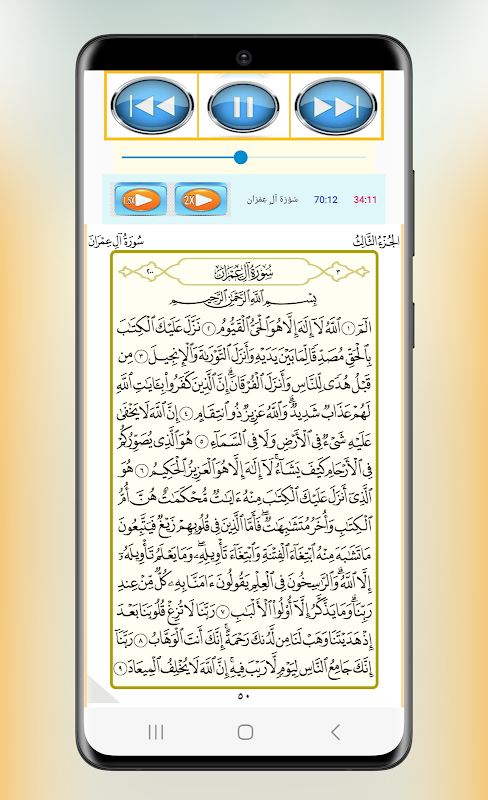 1.5X 2X سُورَة آلِ عِمْرَان 70:12 34:11
الجُزْءُ الثَّالِثُ سُورَةُ آلِ عِمْرَانَ
٣ سُورَةُ آلِ عِمْرَانَ ٢٠٠
بِسْمِ ٱللَّهِ ٱلرَّحْمَٰنِ ٱلرَّحِيمِ
الٓمٓ ١ ٱللَّهُ لَآ إِلَٰهَ إِلَّا هُوَ ٱلْحَىُّ ٱلْقَيُّومُ ٢ نَزَّلَ عَلَيْكَ ٱلْكِتَٰبَ
بِٱلْحَقِّ مُصَدِّقًا لِّمَا بَيْنَ يَدَيْهِ وَأَنزَلَ ٱلتَّوْرَىٰةَ وَٱلْإِنجِيلَ ٣ مِن
قَبْلُ هُدًى لِّلنَّاسِ وَأَنزَلَ ٱلْفُرْقَانَ ۗ إِنَّ ٱلَّذِينَ كَفَرُوا۟ بِـَٔايَٰتِ ٱللَّهِ
لَهُمْ عَذَابٌ شَدِيدٌ ۗ وَٱللَّهُ عَزِيزٌ ذُو ٱنتِقَامٍ ٤ إِنَّ ٱللَّهَ لَا يَخْفَىٰ
عَلَيْهِ شَىْءٌ فِى ٱلْأَرْضِ وَلَا فِى ٱلسَّمَآءِ ٥ هُوَ ٱلَّذِى يُصَوِّرُكُمْ
فِى ٱلْأَرْحَامِ كَيْفَ يَشَآءُ ۚ لَآ إِلَٰهَ إِلَّا هُوَ ٱلْعَزِيزُ ٱلْحَكِيمُ ٦ هُوَ
ٱلَّذِىٓ أَنزَلَ عَلَيْكَ ٱلْكِتَٰبَ مِنْهُ ءَايَٰتٌ مُّحْكَمَٰتٌ هُنَّ أُمُّ
ٱلْكِتَٰبِ وَأُخَرُ مُتَشَٰبِهَٰتٌ ۖ فَأَمَّا ٱلَّذِينَ فِى قُلُوبِهِمْ زَيْغٌ فَيَتَّبِعُونَ
مَا تَشَٰبَهَ مِنْهُ ٱبْتِغَآءَ ٱلْفِتْنَةِ وَٱبْتِغَآءَ تَأْوِيلِهِۦ ۗ وَمَا يَعْلَمُ تَأْوِيلَهُۥٓ
إِلَّا ٱللَّهُ ۗ وَٱلرَّٰسِخُونَ فِى ٱلْعِلْمِ يَقُولُونَ ءَامَنَّا بِهِۦ كُلٌّ مِّنْ عِندِ
رَبِّنَا ۗ وَمَا يَذَّكَّرُ إِلَّآ أُو۟لُوا۟ ٱلْأَلْبَٰبِ ٧ رَبَّنَا لَا تُزِغْ قُلُوبَنَا بَعْدَ
إِذْ هَدَيْتَنَا وَهَبْ لَنَا مِن لَّدُنكَ رَحْمَةً ۚ إِنَّكَ أَنتَ ٱلْوَهَّابُ ٨ رَبَّنَآ
إِنَّكَ جَامِعُ ٱلنَّاسِ لِيَوْمٍ لَّا رَيْبَ فِيهِ ۚ إِنَّ ٱللَّهَ لَا يُخْلِفُ ٱلْمِيعَادَ ٩
٥٠